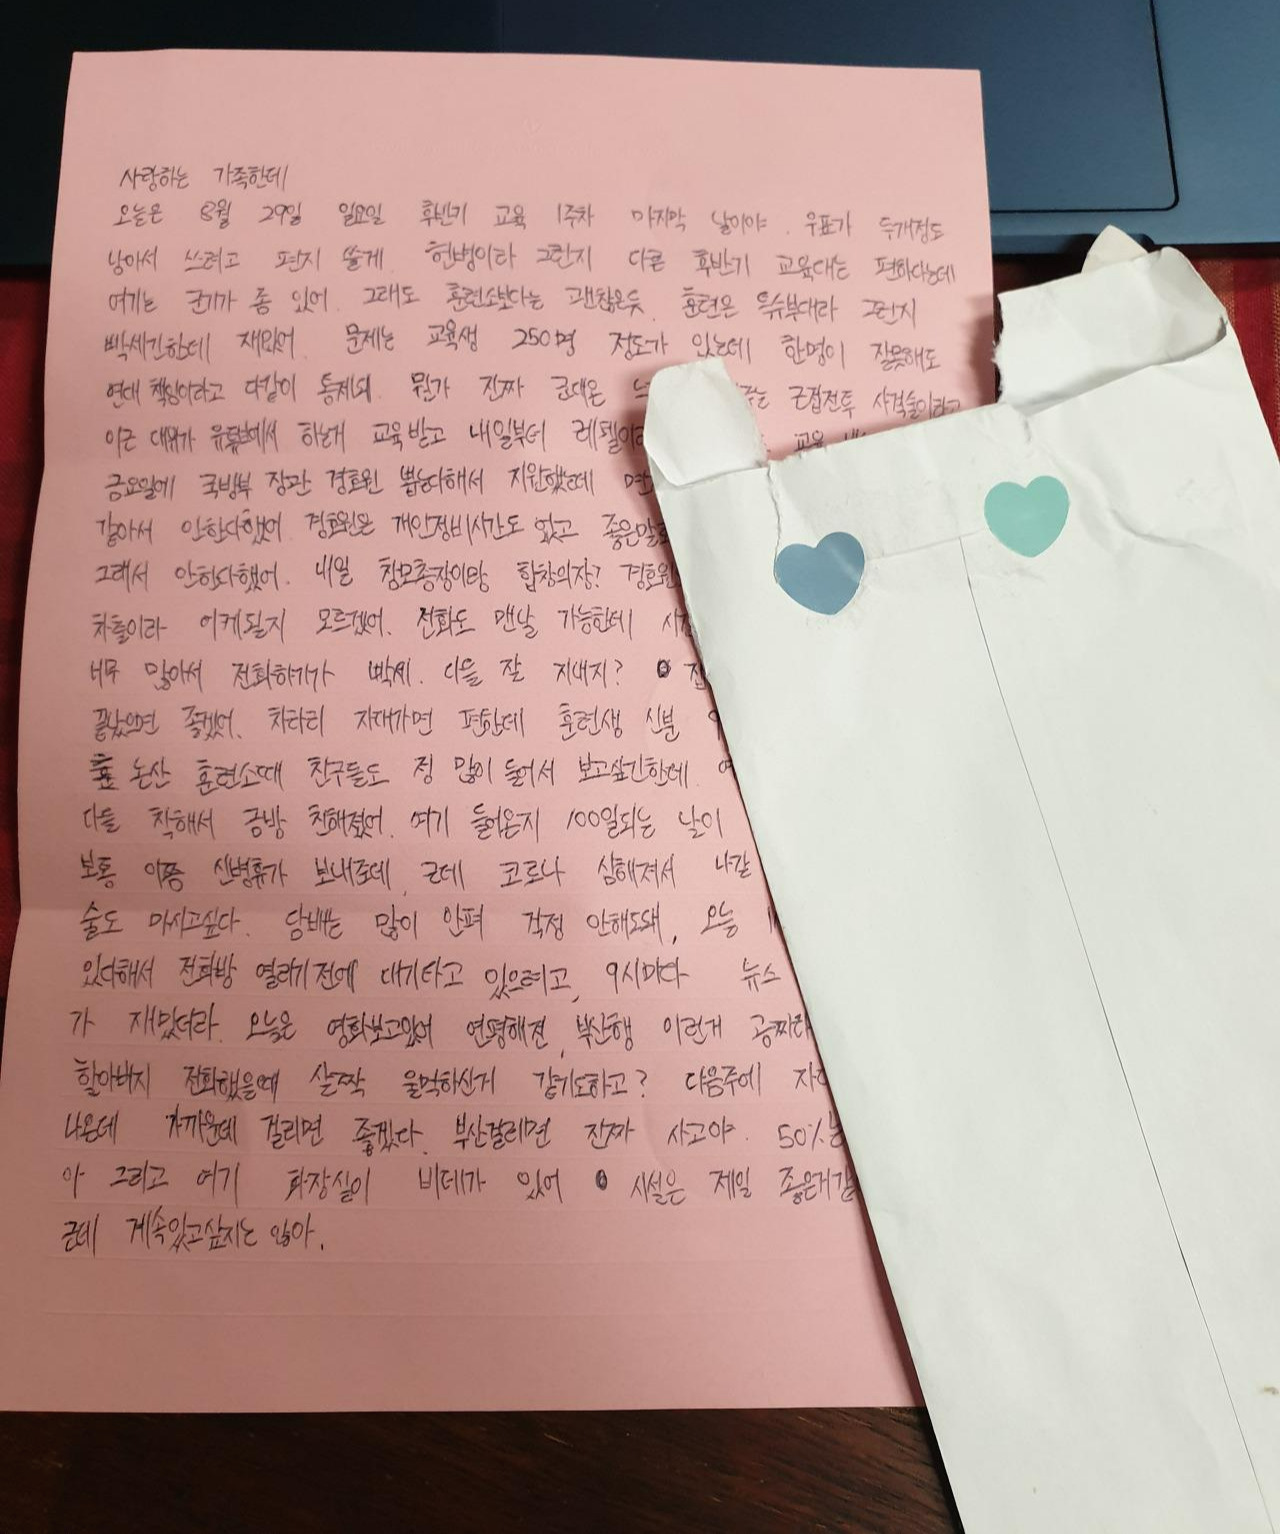 사랑하는 가족한테
오늘은 8월 29일 일요일 후반기 교육 1주차 마지막 날이야. 우표가 두개정도
남아서 쓰려고 편지 쓸게. 헌병이라 그런지 다른 후반기 교육대는 편하다는데
여기는 군기가 좀 있어. 그래도 훈련소보다는 괜찮은듯. 훈련은 특수부대라 그런지
빡세긴한데 재밌어. 문제는 교육생 250명 정도가 있는데 한명이 잘못해도
연대 책임이라고 다같이 통제돼. 뭔가 진짜 군대온 근접전투 사격술이라고
이근 대위가 유튜브에서 하는거 교육받고 내일부터 레펠이라 교육
금요일에 국방부 장관 경호원 뽑는다해서 지원했는데
같아서 안한다했어 경호원은 개인정비시간도 없고
그래서 안한다했어. 내일 참모총장이랑 합창의장? 경호원
차출이라 어케될지 모르겠어. 전화도 맨날 가능한데
너무 많아서 전화하기가 빡세. 다들 잘 지내지?
끝났으면 좋겠어. 차라리 자대가면 편한데 훈련생 신분
논산 훈련소때 친구들도 정 많이 들어서 보고싶긴한데
다들 착해서 금방 친해졌어. 여기 들어온지 100일되는 날이
보통 이쯤 신병휴가 보내주데. 근데 코로나 심해져서 나갈
술도 마시고싶다. 담배는 많이 안펴 걱정 안해도돼. 오늘
있다해서 전화방 열리기전에 대기타고 있으려고. 9시마다 뉴스
가 재밌더라. 오늘은 영화보고있어 연평해전, 부산행 이런거
할아버지 전화했을때 살짝 울먹하신거 같기도하고? 다음주에
나올텐데 가까운데 걸리면 좋겠다. 부산걸리면 진짜 사고야. 50%
아 그리고 여기 화장실이 비데가 있어 시설은 제일 좋은거같
근데 계속있고싶지는 않아.